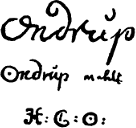 Ondrúp
Ondrúp mahlt
H: C: O: